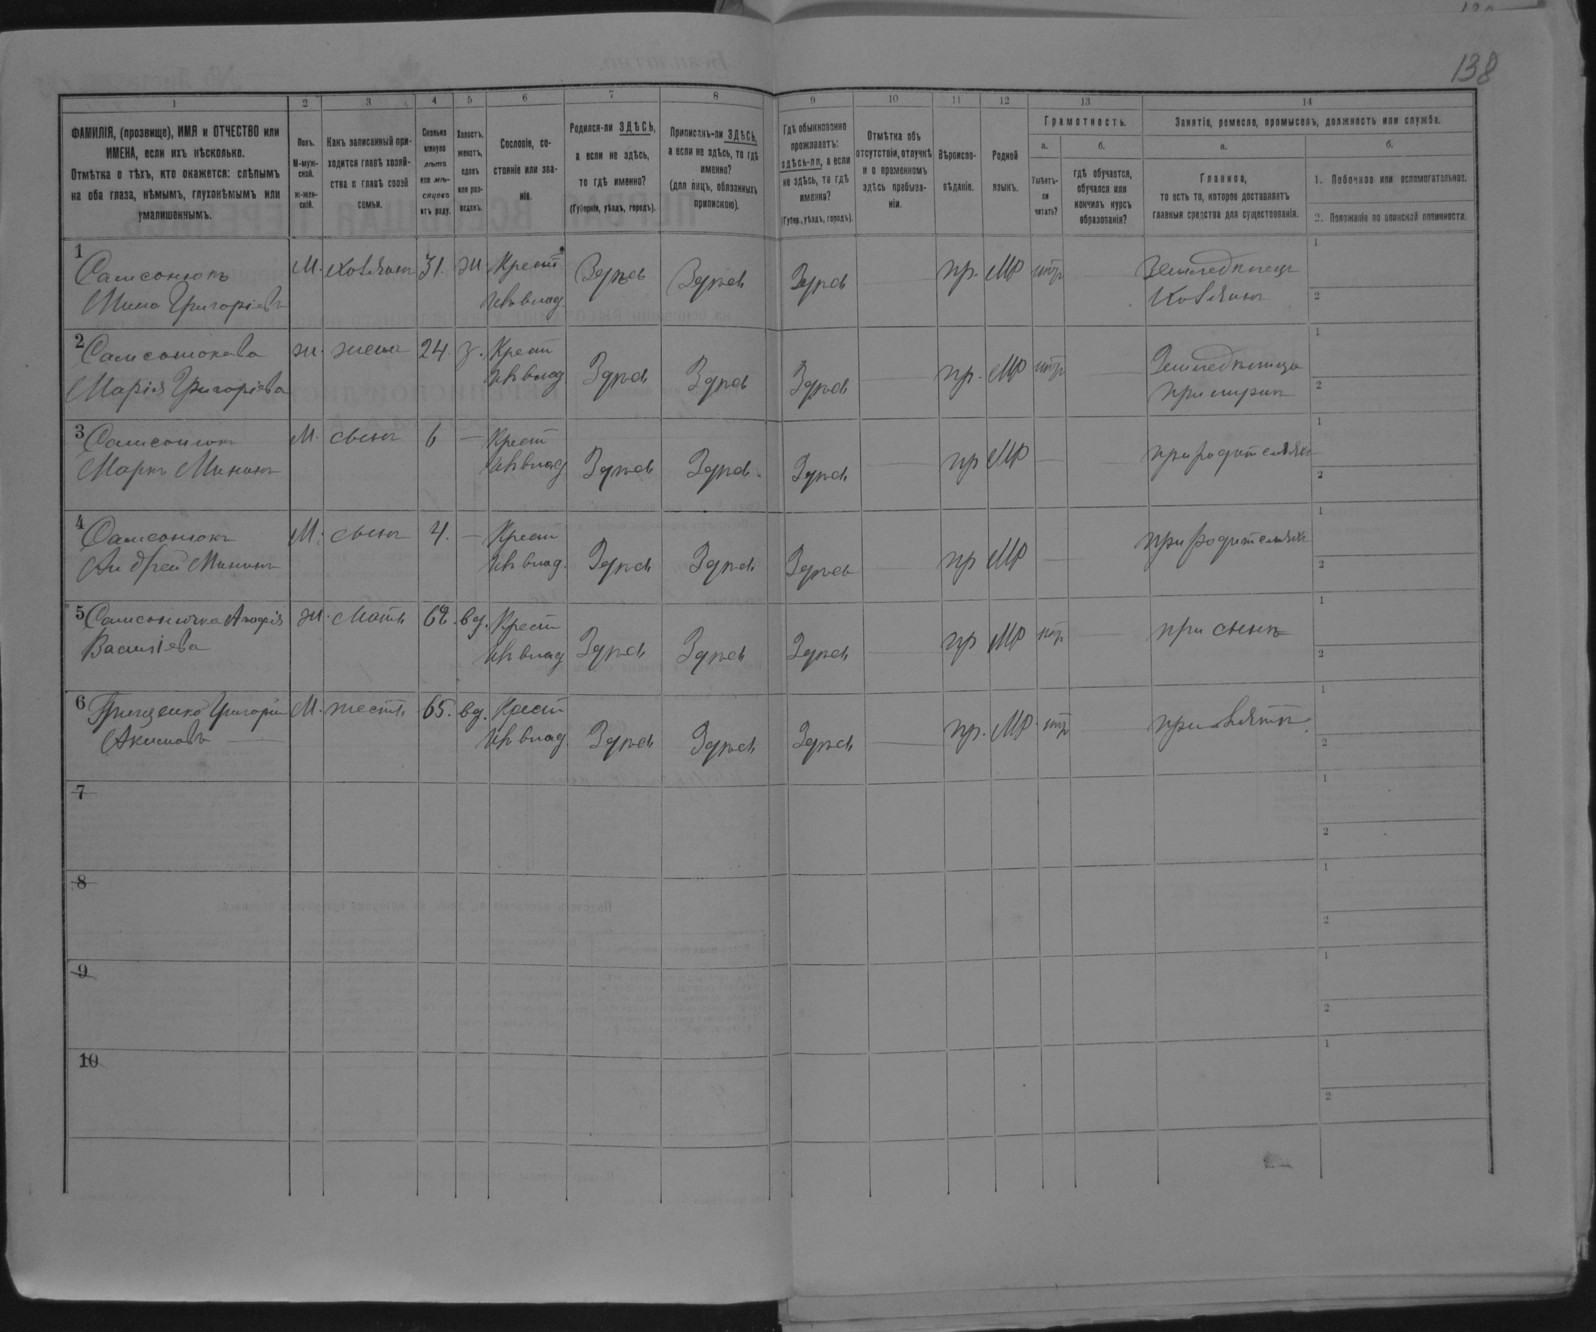 138
1 2 3 4 5 6 7 8 9 10 11 12 13 14
ФАМИЛІЯ, (прозвище), ИМЯ и ОТЧЕСТВО или
ИМЕНА, если ихъ нѣсколько.
Отмѣтка о тѣхъ, кто окажется: слѣпымъ
на оба глаза, нѣмымъ, глухонѣмымъ или
умалишеннымъ.
Полъ.
М-муж-
ской.
ж-жен-
скій.
Какъ записанный при-
ходится главѣ хозяй-
ства и главѣ своей
семьи.
Сколько
минуло
лѣтъ
или мѣ-
сяцевъ
отъ роду.
Холостъ,
женатъ,
вдовъ
или раз-
веденъ.
Сословіе, со-
стояніе или зва-
ніе.
Родился-ли ЗДѢСЬ,
а если не здѣсь,
то гдѣ именно?
(Губернія, уѣздъ, городъ).
Приписанъ-ли ЗДѢСЬ,
а если не здѣсь, то гдѣ
именно?
(для лицъ, обязанныхъ
припискою).
Гдѣ обыкновенно
проживаетъ:
здѣсь-ли, а если
не здѣсь, то гдѣ
именно?
(Губерн., уѣздъ, городъ).
Отмѣтка объ
отсутствіи, отлучкѣ
и о временномъ
здѣсь пребыва-
ніи.
Вѣроиспо-
вѣданіе.
Родной
языкъ.
Грамотность.
а.
Умѣетъ-
ли
читать?
б.
гдѣ обучается,
обучался или
кончилъ курсъ
образованія?
Занятіе, ремесло, промыселъ, должность или служба.
а.
Главное,
то есть то, которое доставляетъ
главныя средства для существованія.
б.
1. Побочное или вспомогательное.
2. Положеніе по воинской повинности.
1 Самсонюкъ М. хозяинъ 31. ж. Крест Здѣсь Здѣсь Здѣсь пр. МР нтр Земледѣлецъ 1
Мина Григоріевъ изъ влад хозяинъ 2
2 Самсонюкова ж. жена 24. з. Крест Здѣсь Здѣсь Здѣсь пр. МР нтр Земледѣлица 1
Марія Григоріева из влад при мужѣ 2
3 Самсонюкъ М. сынъ 6 Крест Здѣсь Здѣсь Здѣсь пр МР при родителяхъ 1
Маркъ Мининъ из влад 2
4 Самсонюкъ М. сынъ 4. Крест Здѣсь Здѣсь Здѣсь пр МР при родителяхъ 1
Андрей Мининъ из влад 2
5 ж. мать 62. вд. Крест Здѣсь Здѣсь Здѣсь пр МР нтр при сынѣ 1
Василіева из влад 2
6 Грищенко Григорій М. тесть 65. вд. Крест Здѣсь Здѣсь Здѣсь пр. МР нтр при зятѣ 1
Акимовъ из влад 2
7 1
2
8 1
2
9 1
2
10 1
2